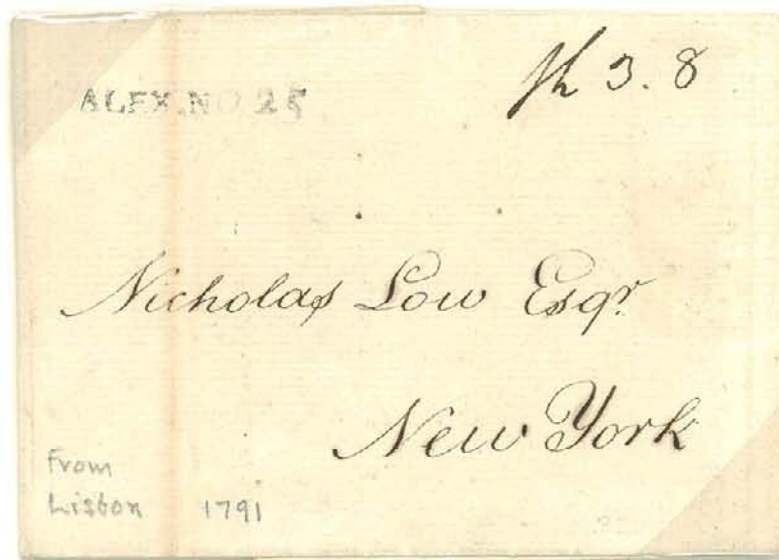 ALEX. NO 25
Sh 3. 8
Nicholas Low Esqr.
New York
From
Lisbon 1791